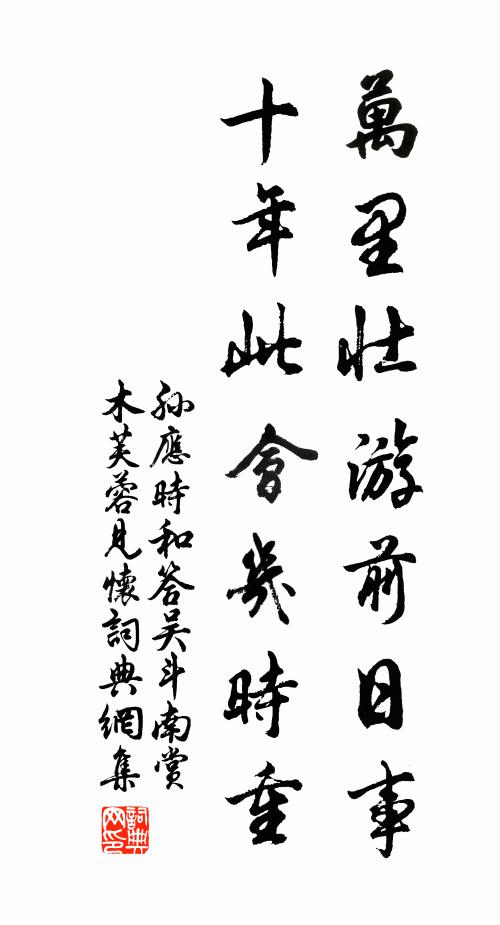 萬里壯游前日事
十年此會幾時重
孫應時和答吴斗南賞
木芙蓉見懷詞典網集
詞典
网印